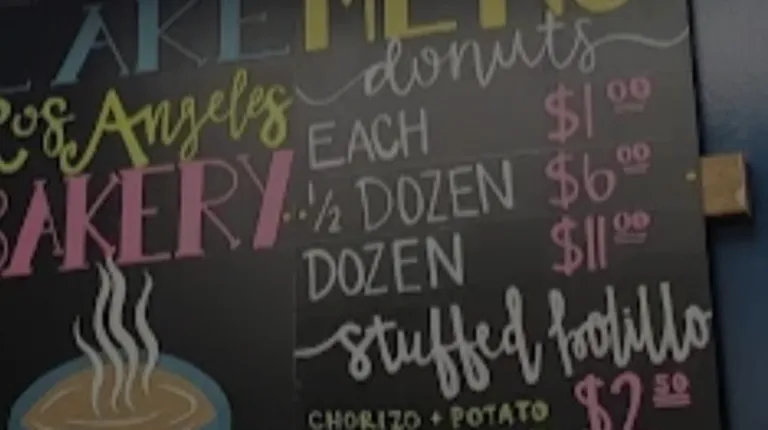 WE ARE
Los Angeles
BAKERY
MENU
donuts
EACH $1.00
1/2 DOZEN $6.00
DOZEN $11.00
stuffed bolillo
CHORIZO + POTATO $2.50